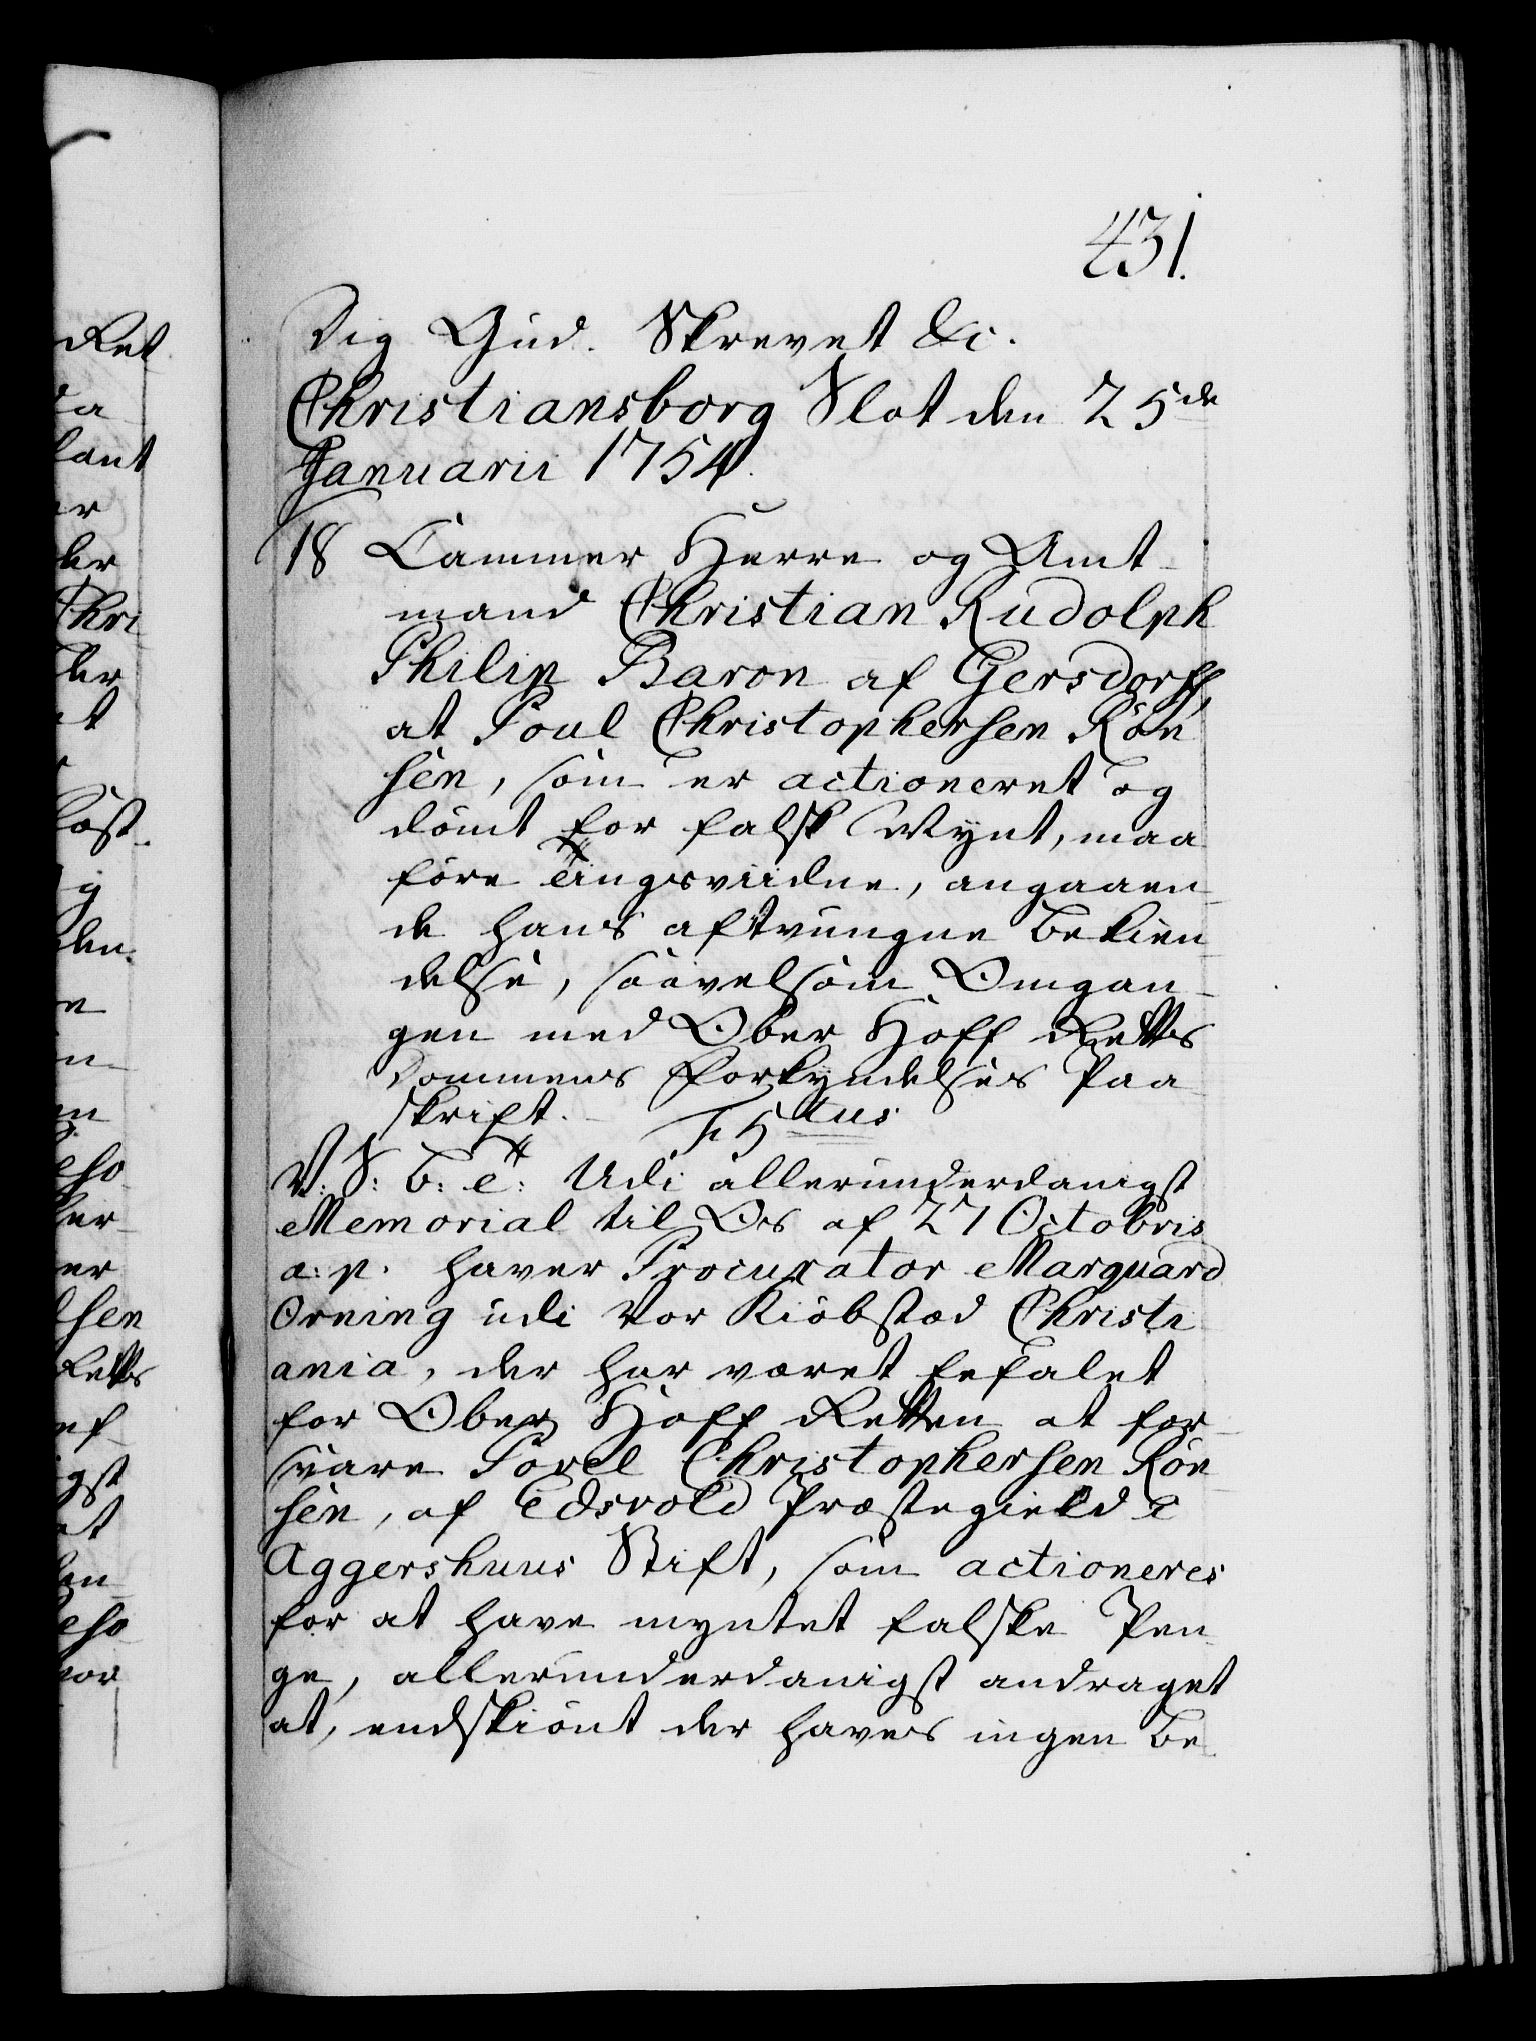 431.
Dig Gud. Skrevet &c.
Christiansborg Slot den 25de
Januarii 1754.
18 Cammer Herre og Amt-
mand Christian Rudolph
Philip Baron af Gersdorff,
at Poul Christophersen Rön
sen, som er actioneret og
dömt for falsk Mynt, maa
före Tingsviidne, angaaen-
de hans aftvungne Bekien
delse, saavelsom Omgan-
gen med Ober Hoff Retts
Dommens Forkyndelses Paa
skrift.
V: S: G: T: Udi allerunderdanigst
Memorial til Os af 27 Octobris
a: p. haver Procurator Marquard
Orning udi Vor Kiöbstad Christi
ania, der har været befalet
for Ober Hoff Retten at for-
svare Povel Christophersen Rön
sen, af Edsvold Præstegield i
Aggershuus Stift, som actioneres
for at have myntet falske Pen-
ge, allerunderdanigst andraget
at, endskiönt der haves ingen Be-
Ret
da
lant
er
der
Chri
der
et
Kost-
ig
den.
e
en-
en
eso
ker-
er
lsen
Retts
ef-
igst
et
den-
eso
vor